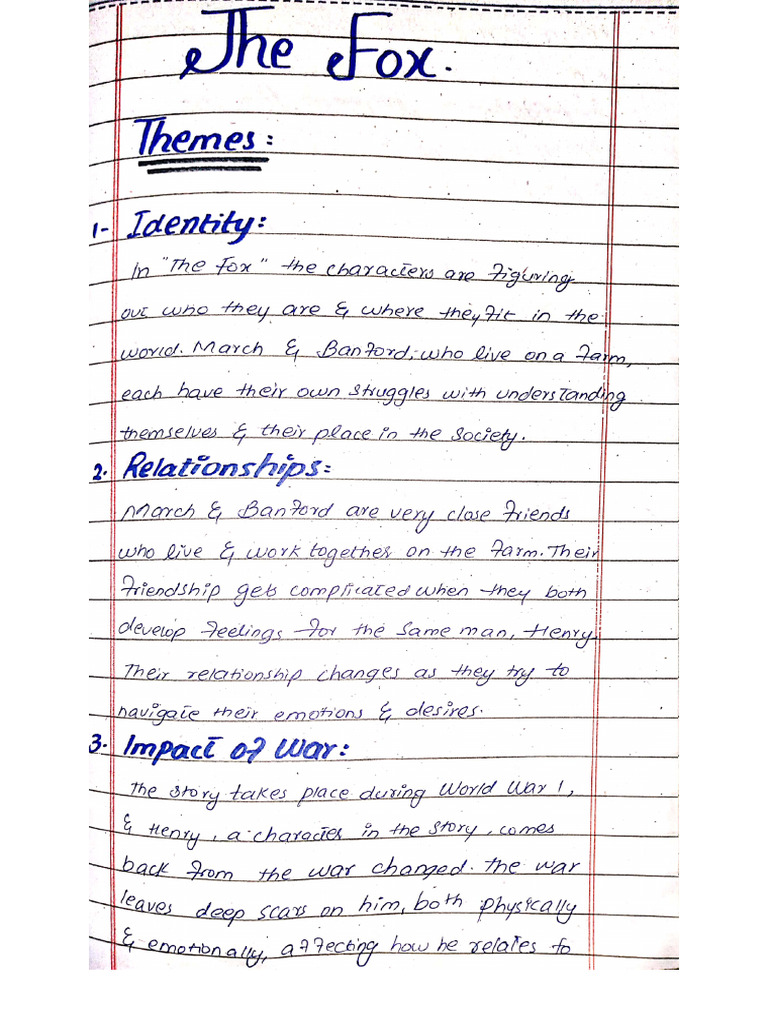 The Fox.
Themes:
1- Identity:
In "The Fox" the characters are figuring
out who they are & where they fit in the
world. March & Banford, who live on a farm,
each have their own struggles with understanding
themselves & their place in the society.
2. Relationships:
March & Banford are very close friends
who live & work together on the farm. Their
friendship gets complicated when they both
develop feelings for the same man, Henry.
Their relationship changes as they try to
navigate their emotions & desires.
3. Impact of War:
The story takes place during World War 1,
& Henry, a character in the story, comes
back from the war changed. The war
leaves deep scars on him, both physically
& emotionally, affecting how he relates to